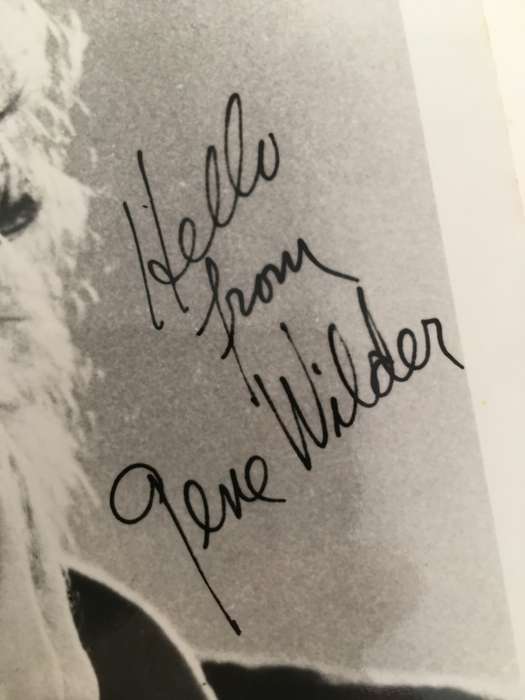 Hello
from
Gene Wilder